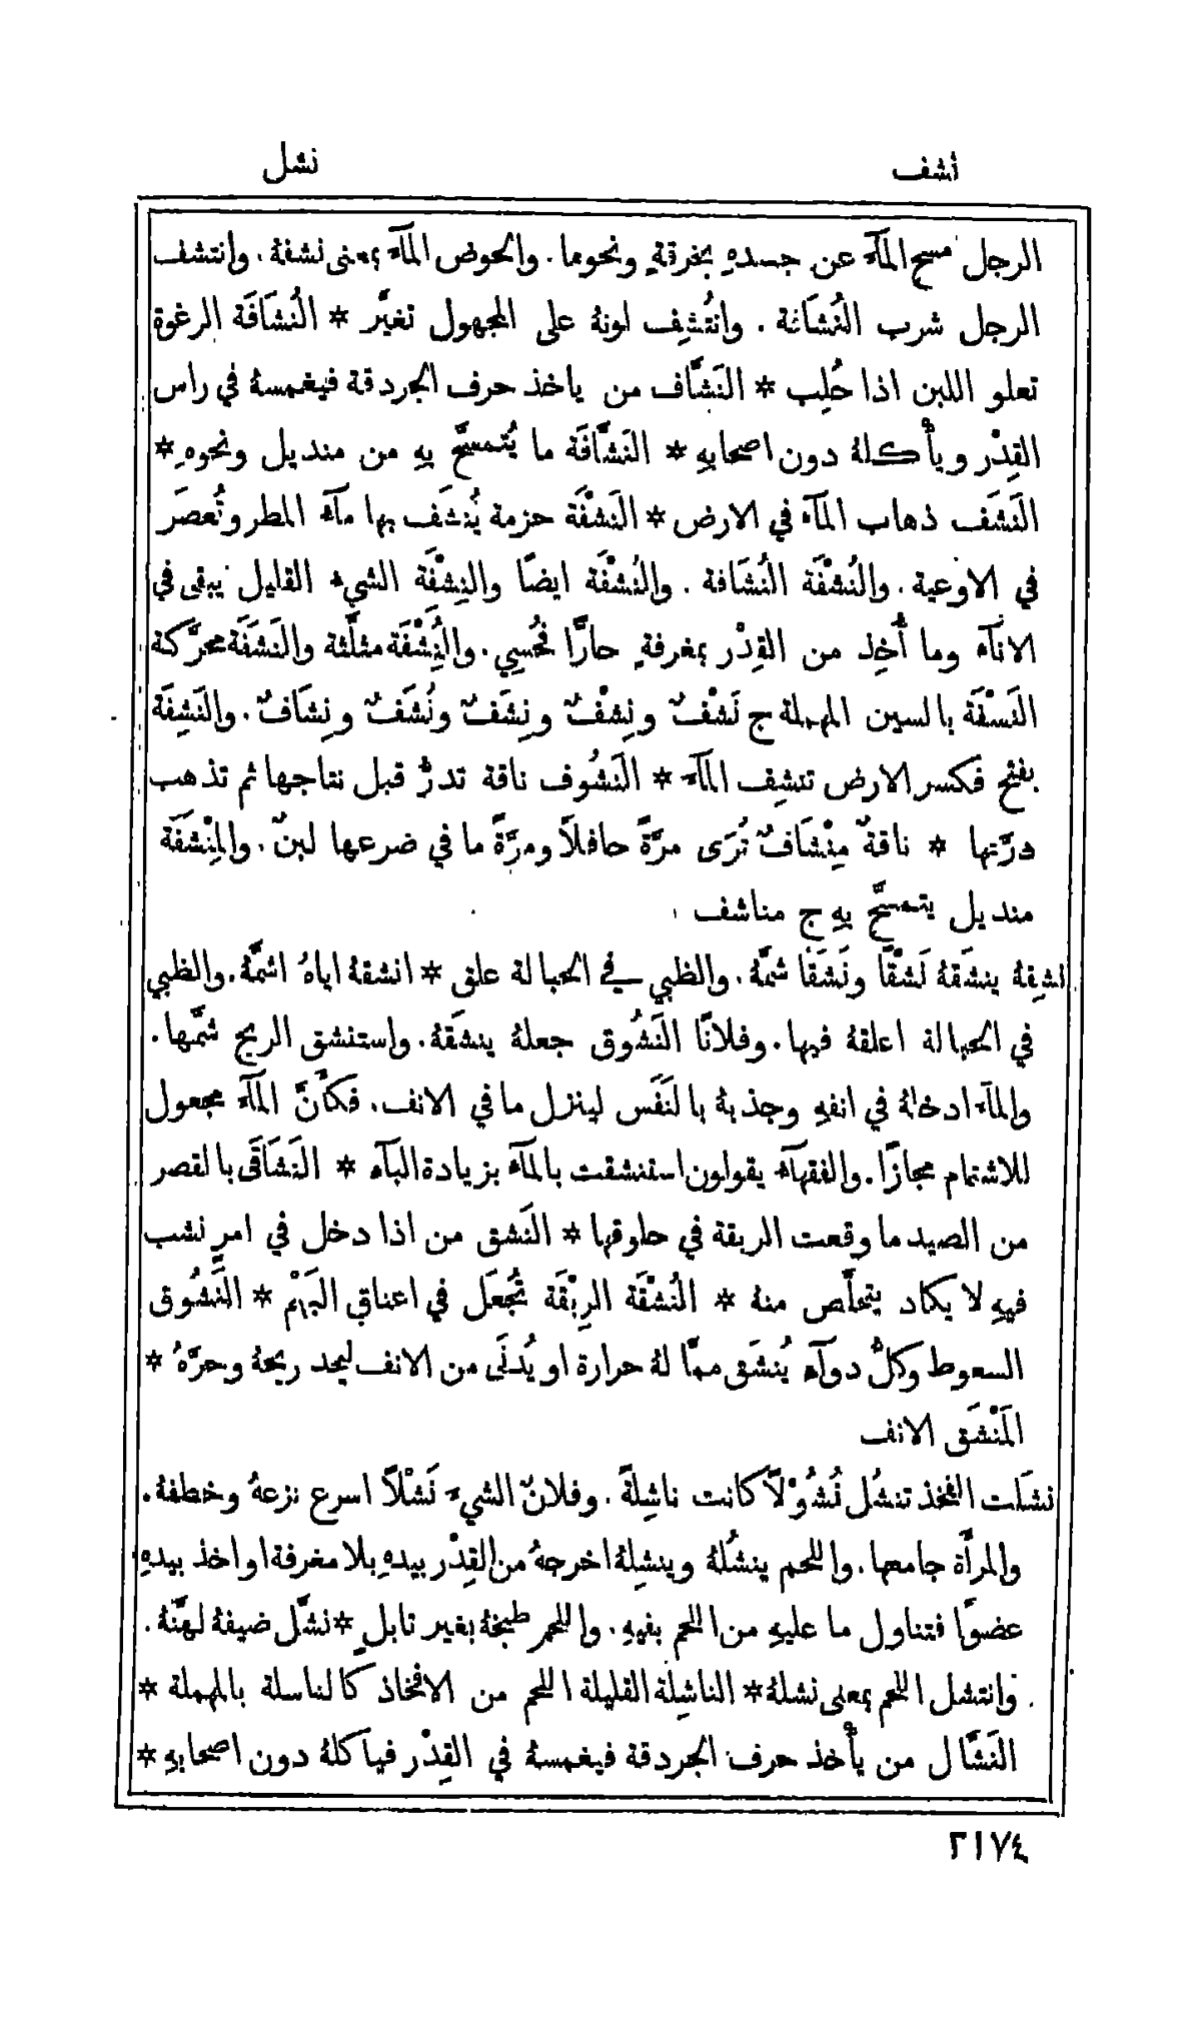 نشف
نشل
الرجل مسح المآء عن جسدهِ بخرقةٍ ونحوها. والحوض المآءَ بمعنى نشفهُ. وانتشف
الرجل شرب النُشَافة. وانتُشِف لونهُ على المجهول تغيَّر * النُشَافَة الرغوة
تعلو اللبن اذا حُلِب * النَشَّاف من ياخذ حرف الجردقة فيغمسهُ في راس
القِدْر ويأْكلهُ دون اصحابهِ * النَشَّافَة ما يُتمسَّح بهِ من منديل ونحوهِ *
النَشَف ذهاب المآء في الارض * النَشْفَة حزمة يُنشَف بها مآء المطر وتُعصَر
في الاوعية. والنُشْفَة النُشَافة. والنُشْفَة ايضًا والنِشْفَة الشيء القليل يبقى في
الانآء وما أُخِذ من القِدْر بمغرفةٍ حارًّا فحُسِي. والنُِشْفَة مثلَّثة والنَشَفَة محرَّكة
النَسْفَة بالسين المهملة ج نَشْفٌ ونِشْفٌ ونِشَفٌ ونُشَفٌ ونِشَافٌ. والنَشِفَة
بفتح فكسر الارض تنشِف المآءَ * النَشُوف ناقة تدرُّ قبل نتاجها ثم تذهب
درَّتها * ناقةٌ مِنْشَافٌ تُرَى مرَّةً حافلًا ومرَّةً ما في ضرعها لبنٌ. والمِنْشَفَة
منديل يتمسَّح بهِ ج مناشف
نشِقهُ ينشَقهُ نَشْقًا ونَشَقًا شمَّهُ. والظبي في الحبالة علق * انشقهُ اياهُ اشمَّهُ. والظبي
في الحبالة اعلقهُ فيها. وفلانًا النَشُوق جعلهُ ينشَقهُ. واستنشق الريح شمَّها.
والمآءَ ادخلهُ في انفهِ وجذبهُ بالنَفَس لينزل ما في الانف. فكأَنَّ المآء مجعول
للاشتمام مجازًا. والفقهآء يقولون استنشقت بالمآء بزيادة البآء * النَشَاقَى بالقصر
من الصيد ما وقعت الربقة في حلوقها * النَشق من اذا دخل في امرٍ نشب
فيهِ لا يكاد يتخلَّص منهُ * النُشْقَة الرِبْقَة تُجعَل في اعناق البَهْم * النَشُوق
السعوط وكلُّ دوآء يُنشَق ممَّا لهُ حرارة او يُدنَى من الانف ليجد ريحهُ وحرَّهُ *
المَنْشَق الانف
نشَلَت الفخذ تنشُل نُشُوْلًا كانت ناشِلةً. وفلانٌ الشيءَ نَشْلًا اسرع نزعهُ وخطفهُ.
والمرأَة جامعها. واللحم ينشُلهُ وينشِلهُ اخرجهُ من القِدْر بيدهِ بلا مغرفة او اخذ بيدهِ
عضوًا فتناول ما عليهِ من اللحم بفيهِ. واللحم طبخهُ بغير تابلٍ * نشَّل ضيفهُ لهَّنهُ.
وانتشل اللحم بمعنى نشلهُ * الناشِلة القليلة اللحم من الافخاذ كالناسلة بالمهملة *
النَشَّال من يأْخذ حرف الجردقة فيغمسهُ في القِدْر فياكلهُ دون اصحابهِ *
٢١٧٤